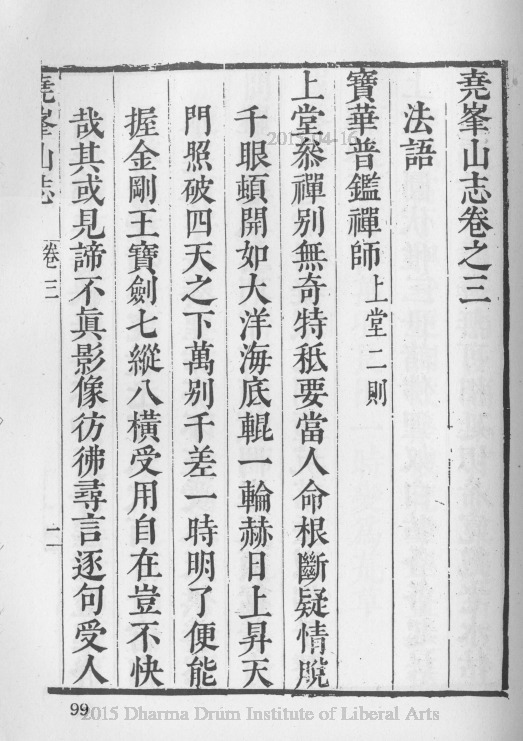 堯峯山志卷之三
法語
寶華普鑑禪師上堂二則
上堂叅禪別無奇特秖要當人命根斷疑情脫
千眼頓開如大洋海底輥一輪赫日上昇天
門照破四天之下萬別千差一時明了便能
握金剛王寶劍七縱八橫受用自在豈不快
哉其或見諦不眞影像彷彿尋言逐句受人
堯峯山志 卷三 一
2015-04-16
99
2015 Dharma Drum Institute of Liberal Arts